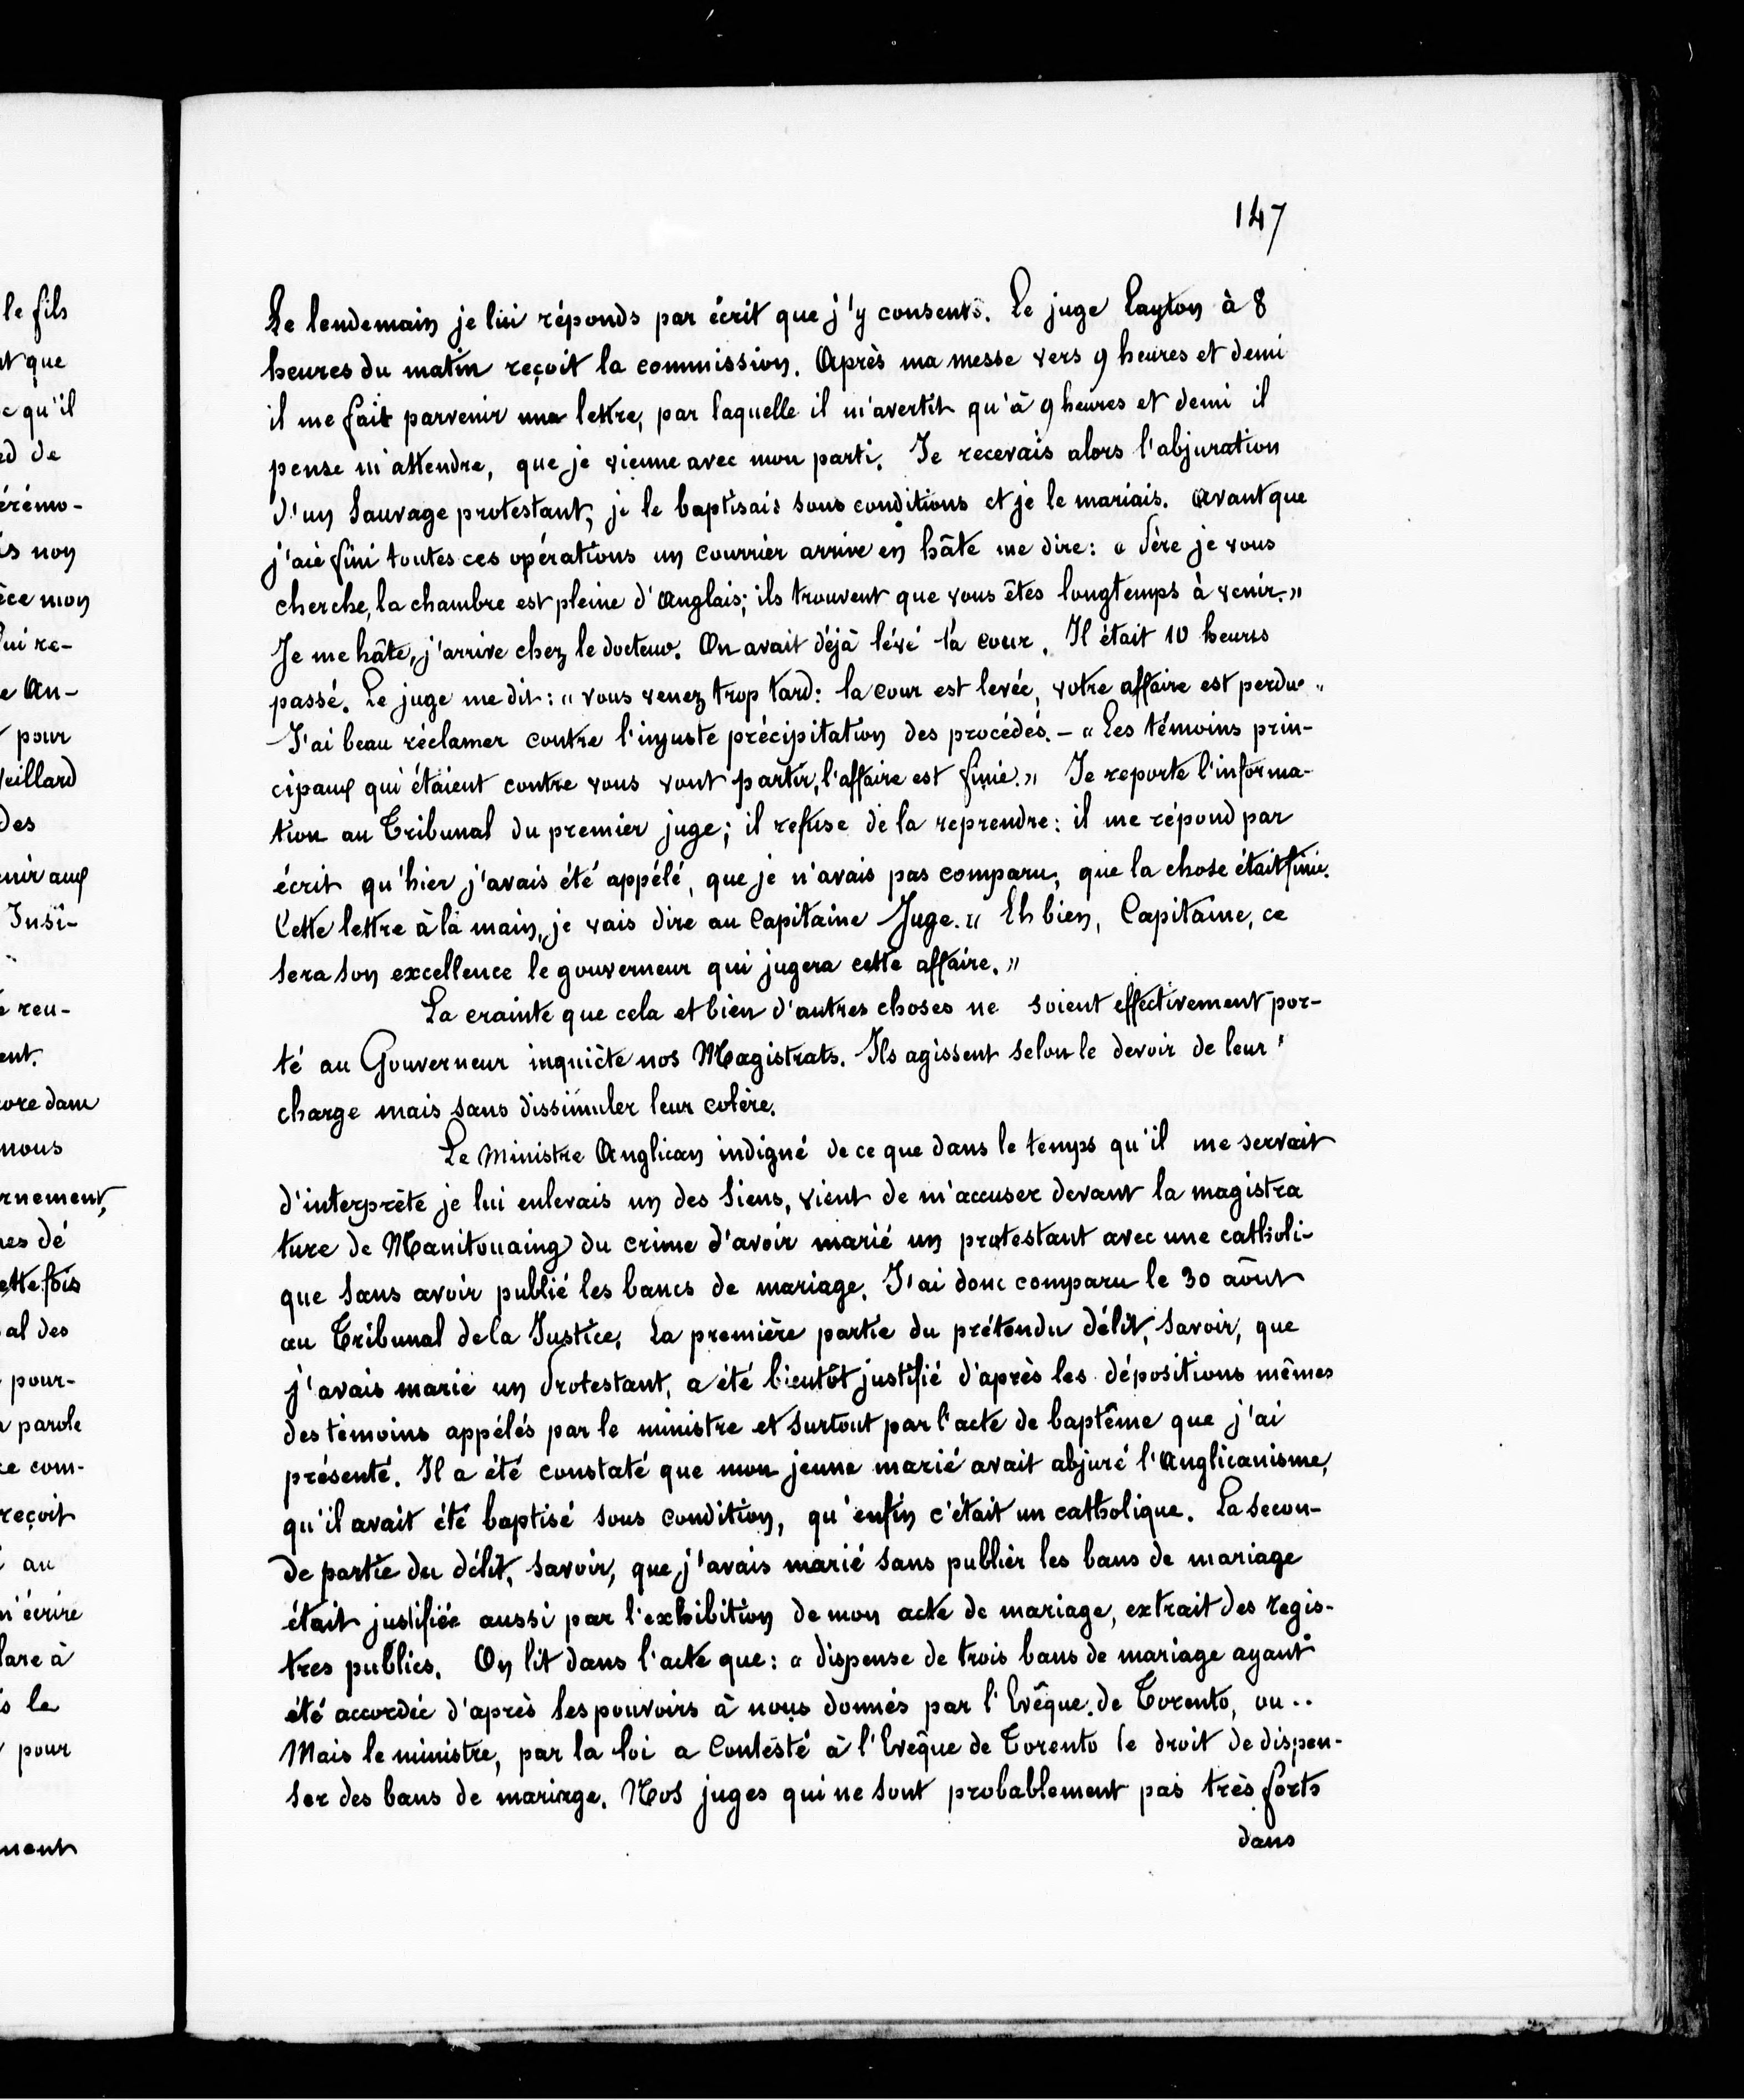 le fils
nt que
c qu'il
ed de
érémo-
is non
èce mon
lui re-
e An-
pour
veillard
des
enir aux
Insi-
reu-
ent.
core dans
nous
rnement,
nes dé
ette fois
al des
pour-
parole
ce com-
reçoit
au
m'écrire
lare à
s le
pour
ment
147
Le lendemain je lui réponds par écrit que j'y consents. Le juge Layton à 8
heures du matin reçoit la commission. Après ma messe vers 9 heures et demi
il me fait parvenir une lettre, par laquelle il m'avertit qu'à 9 heures et demi il
pense m'attendre, que je vienne avec mon parti. Je recevais alors l'abjuration
d'un Sauvage protestant, je le baptisais sous conditions et je le mariais. Avant que
j'aie fini toutes ces opérations un courrier arrive en hâte me dire: « Père je vous
cherche, la chambre est pleine d'Anglais; ils trouvent que vous êtes longtemps à venir. »
Je me hâte, j'arrive chez le docteur. On avait déjà lévé la cour. Il était 10 heures
passé. Le juge me dit: « vous venez trop tard: la cour est levée, votre affaire est perdue »
J'ai beau réclamer contre l'injuste précipitation des procédés. - « Les témoins prin-
cipaux qui étaient contre vous vont partir, l'affaire est finie. » Je reporte l'informa-
tion au Tribunal du premier juge; il refuse de la reprendre: il me répond par
écrit qu'hier j'avais été appélé, que je n'avais pas comparu, que la chose était finie.
Cette lettre à la main, je vais dire au Capitaine Juge. « Eh bien, Capitaine, ce
sera son excellence le gouverneur qui jugera cette affaire. »
La crainte que cela et bien d'autres choses ne soient effectivement por-
té au Gouverneur inquiète nos Magistrats. Ils agissent selon le devoir de leur
charge mais sans dissimuler leur colère.
Le Ministre Anglican indigné de ce que dans le temps qu'il me servait
d'interprète je lui enlevais un des siens, vient de m'accuser devant la magistra
ture de Manitouaing du crime d'avoir marié un protestant avec une catholi-
que sans avoir publié les bancs de mariage. J'ai donc comparu le 30 août
au Tribunal de la Justice. La première partie du prétendu délit, savoir, que
j'avais marié un Protestant, a été bientôt justifié d'après les dépositions mêmes
des témoins appélés par le ministre et surtout par l'acte de baptême que j'ai
présenté. Il a été constaté que mon jeune marié avait abjuré l'Anglicanisme,
qu'il avait été baptisé sous condition, qu'enfin c'était un catholique. La secon-
de partie du délit, savoir, que j'avais marié sans publier les bans de mariage
était justifiée aussi par l'exhibition de mon acte de mariage, extrait des regis-
tres publics. On lit dans l'acte que: « dispense de trois bans de mariage ayant
été accordée d'après les pouvoirs à nous donnés par l'Evêque de Toronto, ou..
Mais le ministre, par la loi a contésté à l'Evêque de Toronto le droit de dispen-
ser des bans de mariage. Nos juges qui ne sont probablement pas très forts
dans